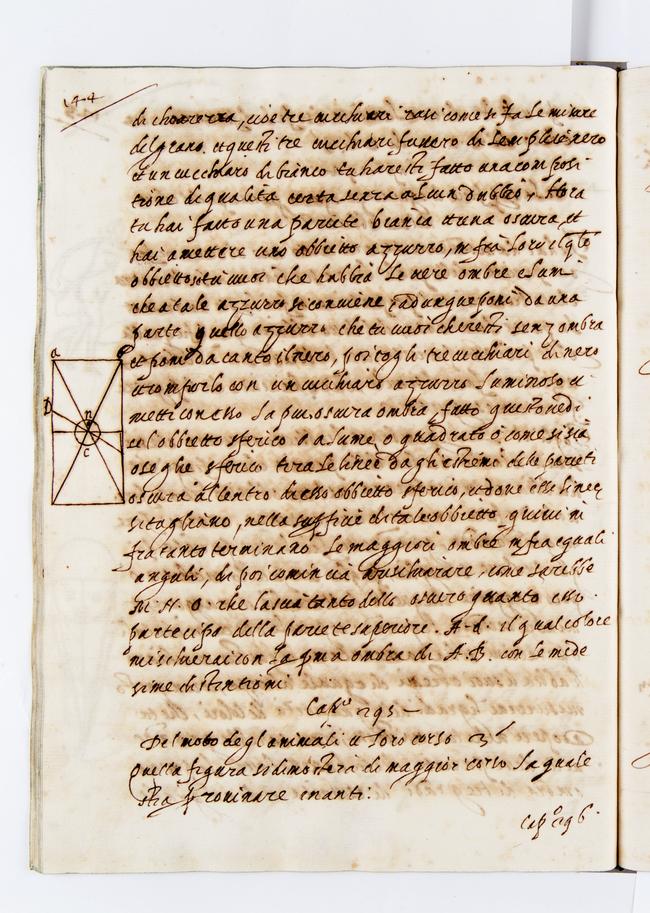 144
di chiarezza, cioè tre cucchiari rasi come si fa le misure
del grano. et questi tre cucchiari fussero di semplice nero
et un cucchiaro di bianco tu haresti fatto una composi
tione di qualità certa senza alcun dubbio, Hora
tu hai fatto una pariete bianca et una oscura, et
hai a mettere uno obbietto azzurro, infra loro il qle
obbietto se tu vuoi che habbia le vere ombre e lumi
che a tale azzurro si conviene, adunque poni da una
parte quello azzurro che tu vuoi che resti senz ombra
et poni da canto il nero, poi togli tre cucchiari di nero
con un cucchiaro azzurro luminoso et
metti con esso la più oscura ombra, fatto questo vedi
se l'obbietto è sferico o quadrato o come si sia
o se gli è sferico tira le linee dagli estremi delle parieti
oscura al centro di esso obbietto sferico, et dove esse linee
si tagliano, nella di tale obbietto quivi in
fra tanto terminano le maggiori ombre infra equali
anguli, di poi comincia a rischiarare, come sarebbe
in N. O. che lascia tanto dello oscuro quanto esso
partecipa della pariete superiore. A-d. il qual colore
mischierai con la pma ombra di A. B. con le mede
sime distintioni
Capº 295 –
Del moto de gl animali et loro corso
Quella figura si dimostera di maggior corso la quale
stia p rovinare inanti:
Capº 296.
a
D
n
c